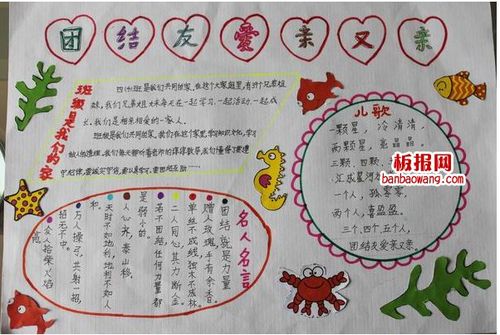 团结友爱亲又亲
班级是我们的家
四(1)班是我们共同的家,在这个大家庭里,有40个兄弟姐
妹,我们兄弟姐妹每天在一起学习,一起活动,一起成
长,我们是相亲相爱的一家人。
班级是我们共同的家,我们在这个家里,学习知识文化,学习
做人的道理。我们每天聆听着老师的谆谆教导,我们懂得了要遵
守纪律,要诚实守信,要
儿歌
一颗星,冷清清,
两颗星,亮晶晶。
三颗、四颗、
汇成星河
一个人,孤零零,
两个人,喜盈盈。
三个、四个、五个人,
团结友爱亲又亲。
板报网
banbaowang.com
名人名言
团结就是力量
赠人玫瑰,手有余香。
单丝不成线,独木不成林。
二人同心,其力断金。
若不团结,任何力量都
是弱小的。
人心齐,泰山移。
天时不如地利,地利不如人
和。
万人操弓,共射一招,
招无不中。
众人拾柴火焰
高。